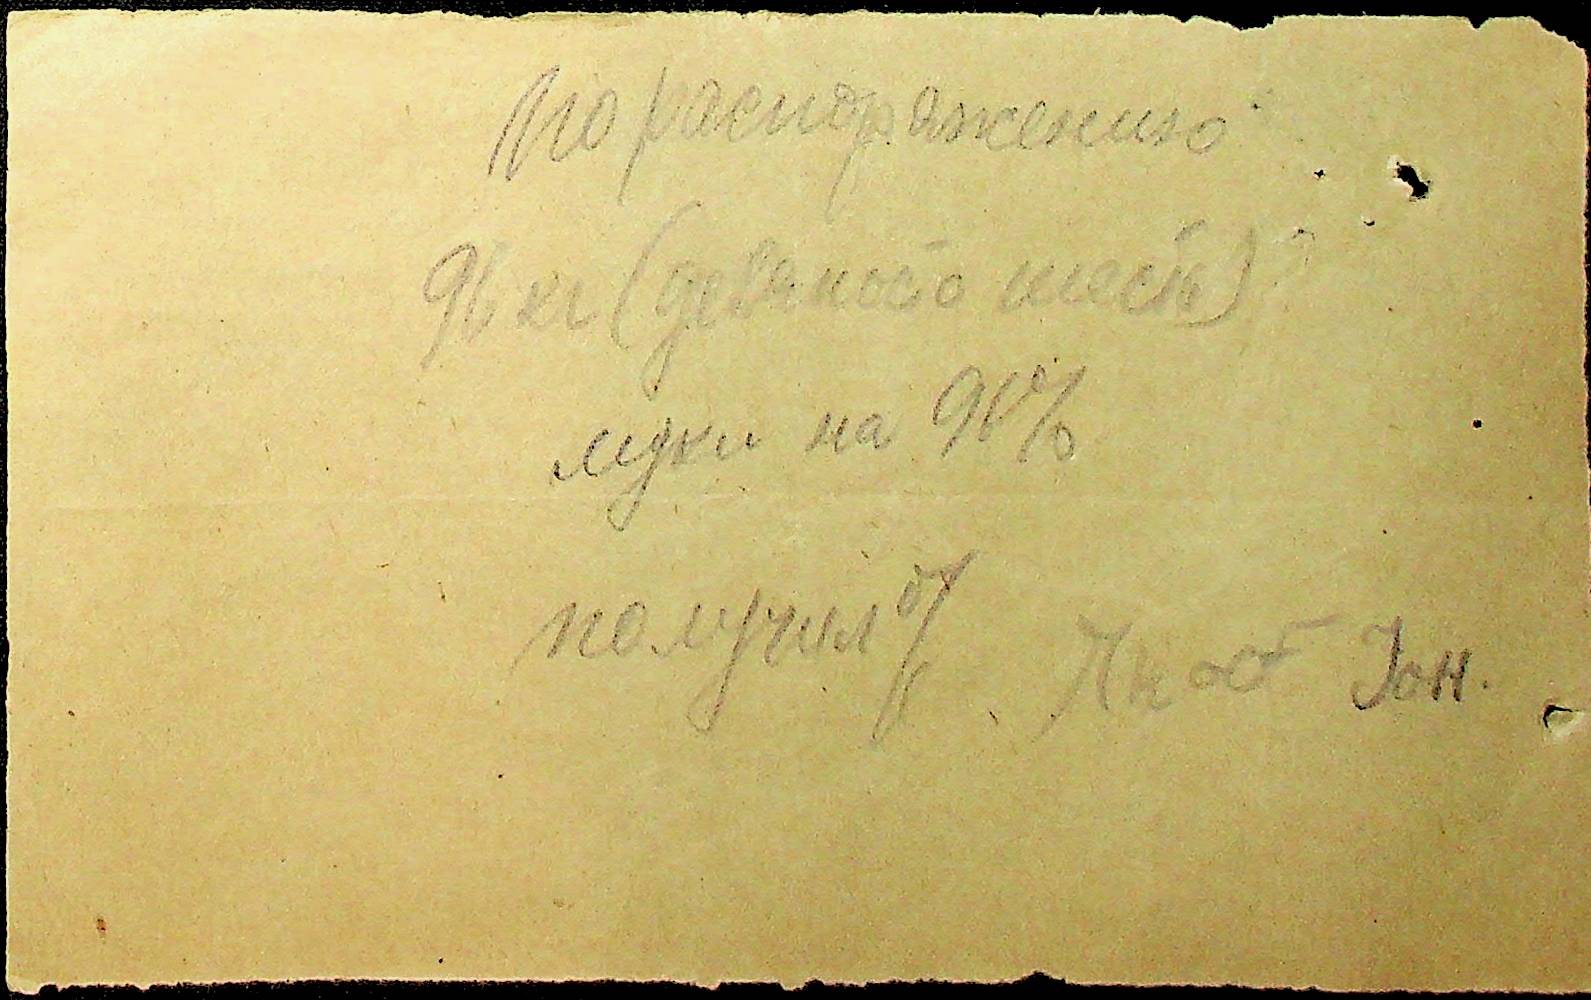 По распоряжению
96 кг (девяносто шесть)
муки на 96%
получил